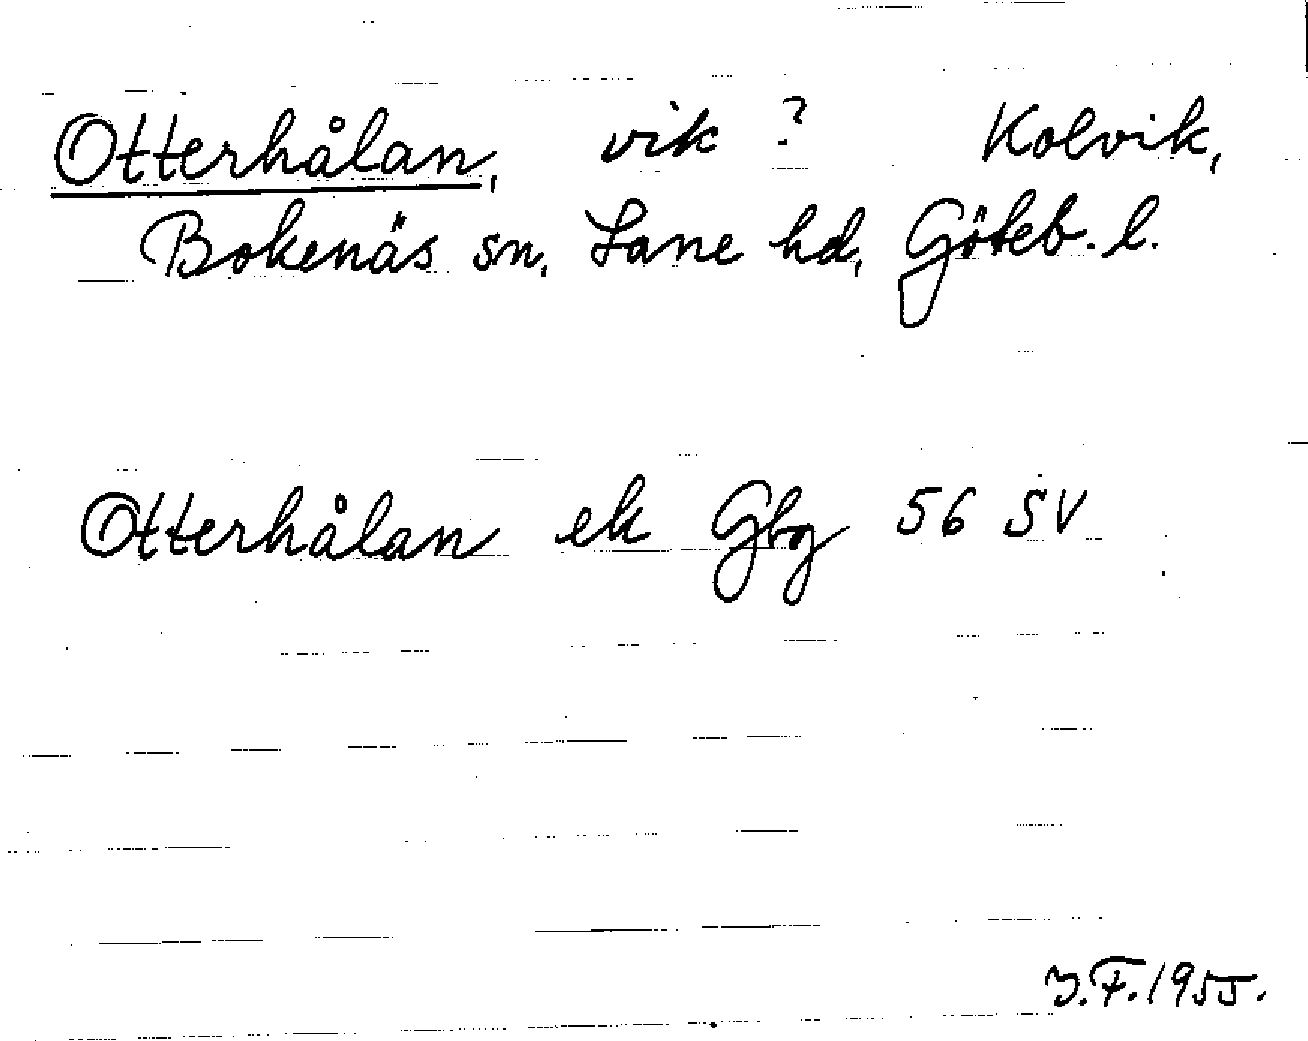 Otterhålan, vik ? Kolvik,
Bokenäs sn, Lane hd, Göteb. l.
Otterhålan ek Gbg 56 SV
J.F.1955.